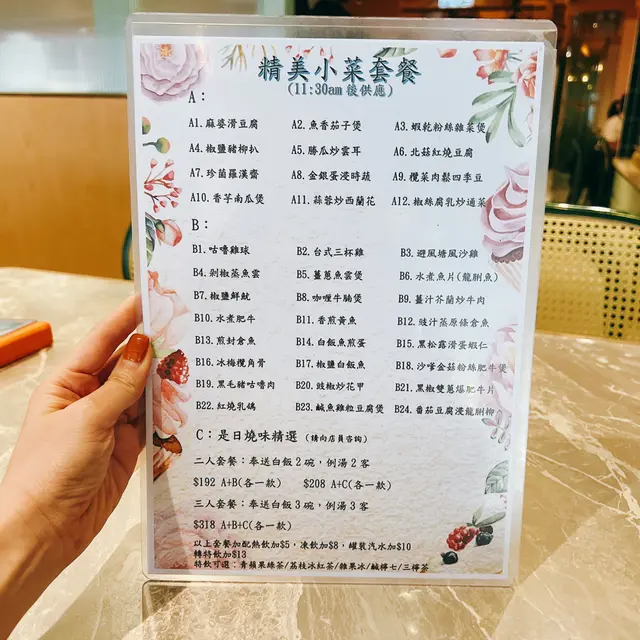 精美小菜套餐
(11:30am 後供應)
A：
A1.麻婆滑豆腐 A2.魚香茄子煲 A3.蝦乾粉絲雜菜煲
A4.椒鹽豬柳扒 A5.勝瓜炒雲耳 A6.北菇紅燒豆腐
A7.珍菌羅漢齋 A8.金銀蛋浸時蔬 A9.欖菜肉鬆四季豆
A10.香芋南瓜煲 A11.蒜蓉炒西蘭花 A12.椒絲腐乳炒通菜
B：
B1.咕嚕雞球 B2.台式三杯雞 B3.避風塘風沙雞
B4.剁椒蒸魚雲 B5.薑蔥魚雲煲 B6.水煮魚片(龍脷魚)
B7.椒鹽鮮魷 B8.咖喱牛腩煲 B9.薑汁芥蘭炒牛肉
B10.水煮肥牛 B11.香煎黃魚 B12.豉汁蒸原條倉魚
B13.煎封倉魚 B14.白飯魚煎蛋 B15.黑松露滑蛋蝦仁
B16.冰梅欖角骨 B17.椒鹽白飯魚 B18.沙嗲金菇粉絲肥牛煲
B19.黑毛豬咕嚕肉 B20.豉椒炒花甲 B21.黑椒雙蔥爆肥牛片
B22.紅燒乳鴿 B23.鹹魚雞粒豆腐煲 B24.番茄豆腐浸龍脷柳
C：是日燒味精選 (請向店員咨詢)
二人套餐：奉送白飯2碗，例湯2客
$192 A+B(各一款) $208 A+C(各一款)
三人套餐：奉送白飯3碗，例湯3客
$318 A+B+C(各一款)
以上套餐加配熱飲加$5，凍飲加$8，罐裝汽水加$10
轉特飲加$13
特飲可選：青蘋果綠茶/荔枝冰紅茶/雜果冰/鹹檸七/三檸茶